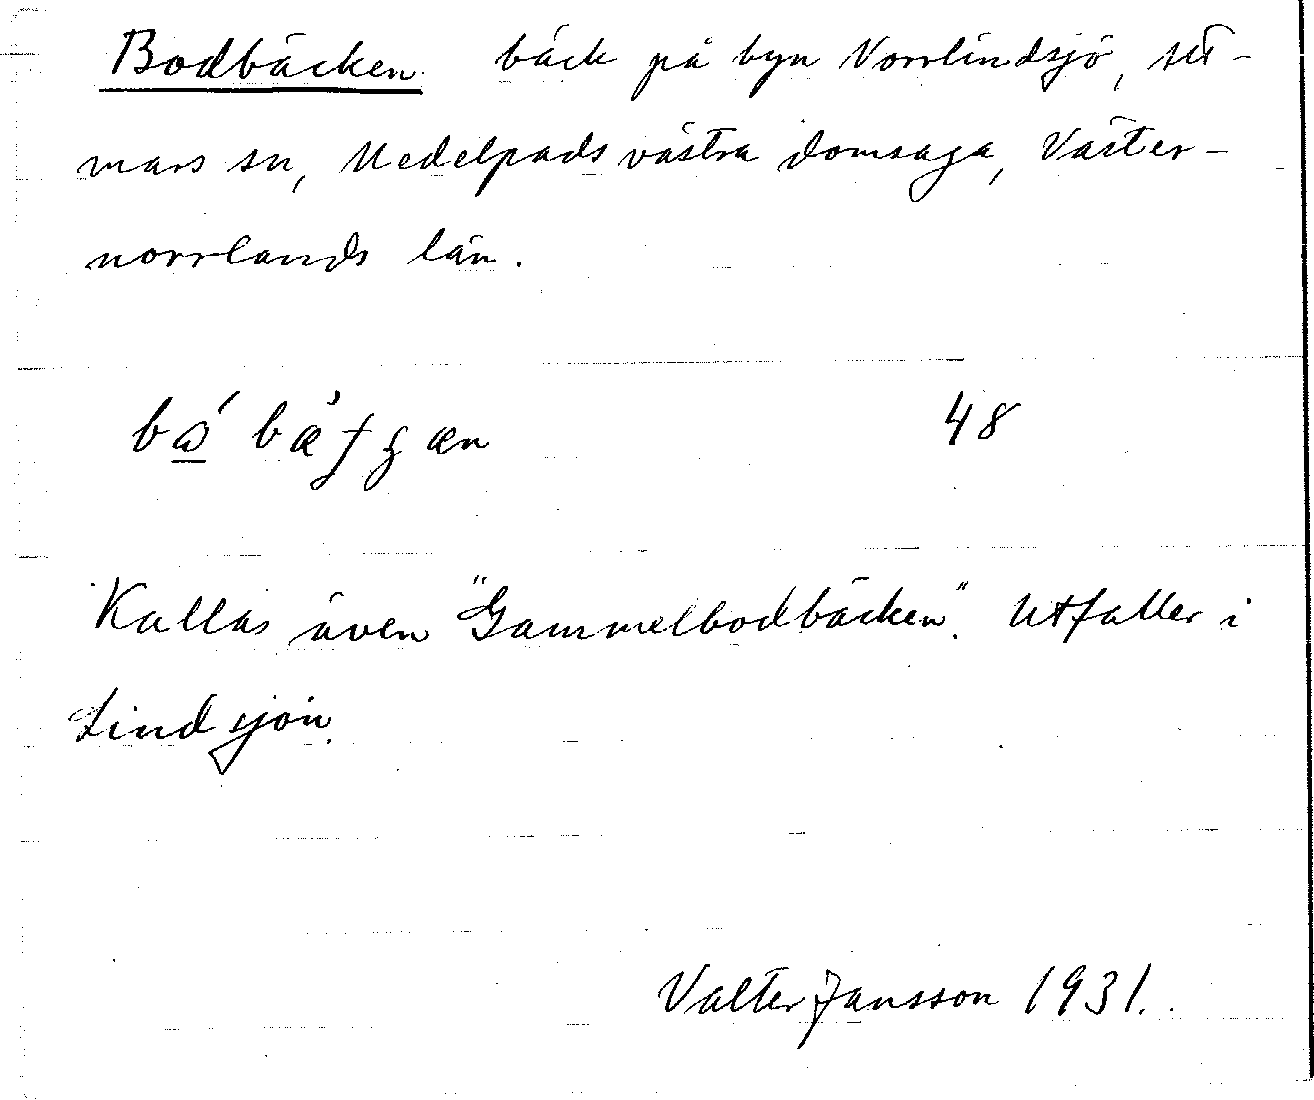 Bodbäcken bäck på byn Norrlindsjö, Att-
mars sn, Medelpads västra domsaga, Väster-
norrlands län.
48
Kallas även "Gammelbodbäcken". Utfaller i
Lindsjön.
Valter Jansson 1931.